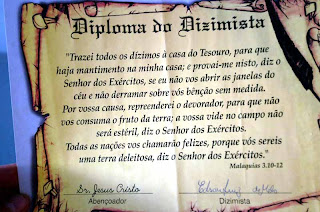 Diploma do Dizimista
"Trazei todos os dízimos à casa do Tesouro, para que
haja mantimento na minha casa; e provai-me nisto, diz o
Senhor dos Exércitos, se eu não vos abrir as janelas do
céu e não derramar sobre vós bênção sem medida.
Por vossa causa, repreenderei o devorador, para que não
vos consuma o fruto da terra; a vossa vide no campo não
será estéril, diz o Senhor dos Exércitos.
Todas as nações vos chamarão felizes, porque vós sereis
uma terra deleitosa, diz o Senhor dos Exércitos."
Malaquias 3.10-12
Sr. Jesus Cristo
Abençoador Dizimista